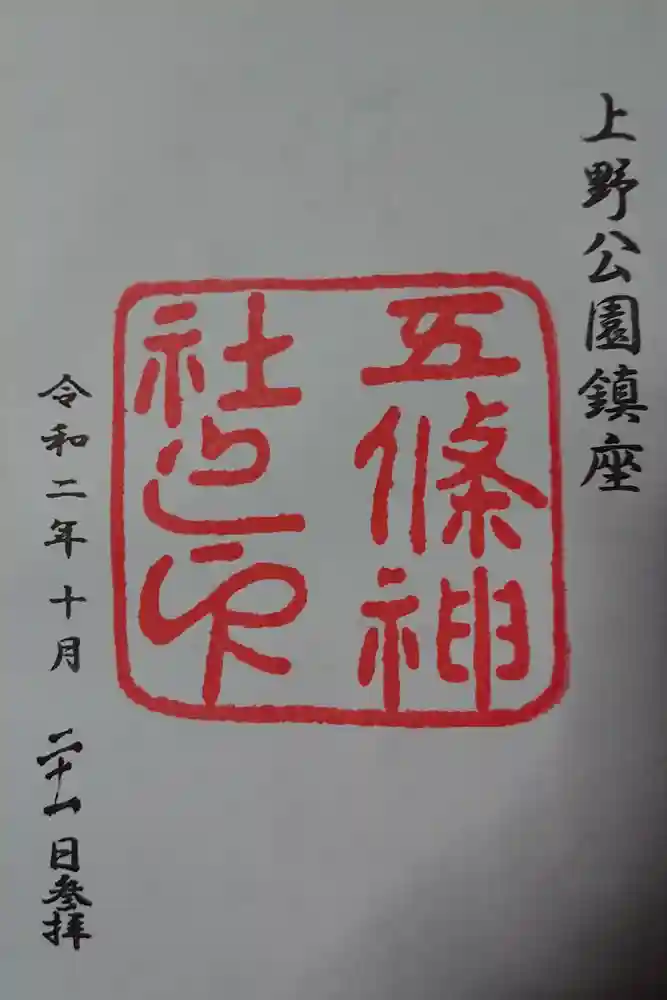 上野公園鎮座
五條神
社之印
令和二年十月二十一日参拝